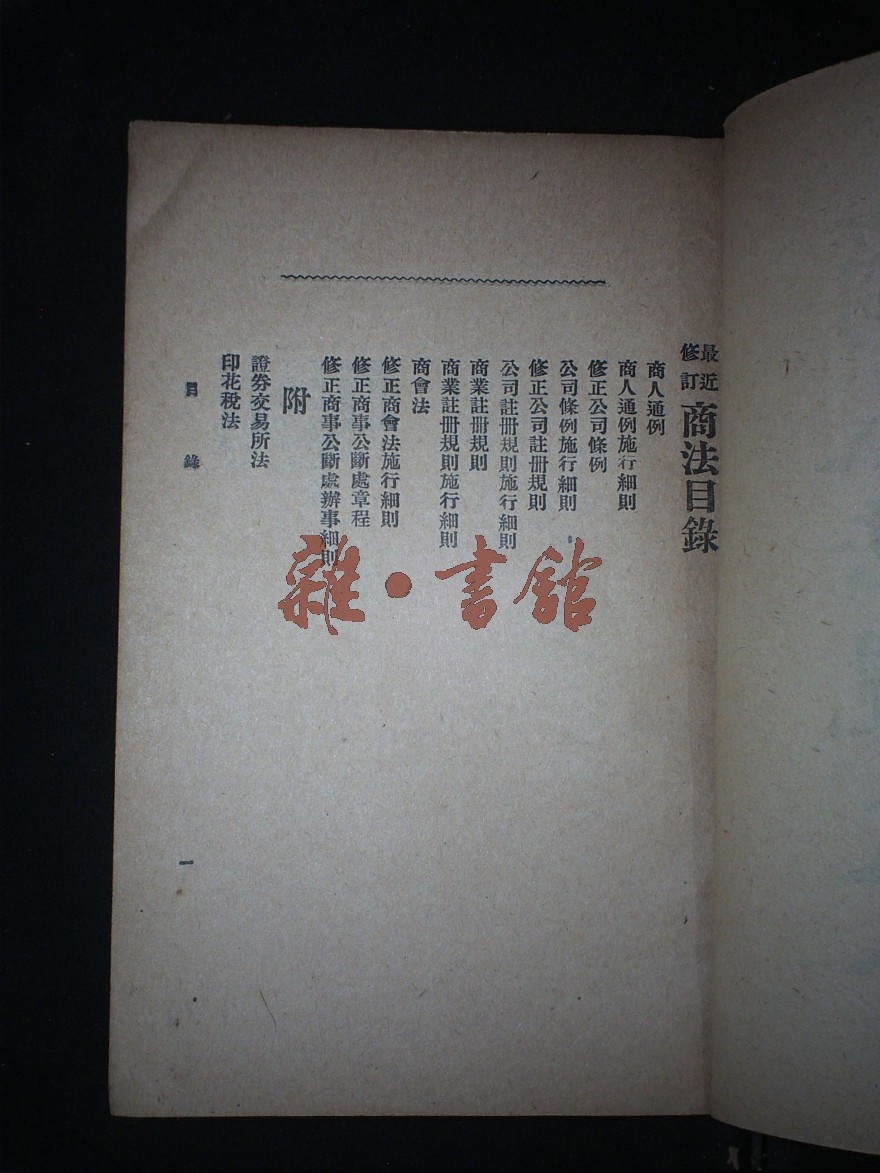 最近修訂商法目錄
商人通例
商人通例施行細則
修正公司條例
公司條例施行細則
修正公司註冊規則
公司註冊規則施行細則
商業註冊規則
商業註冊規則施行細則
商會法
修正商會法施行細則
修正商事公斷處章程
修正商事公斷處辦事細則
附
證券交易所法
印花稅法
目錄
一
雜·書館